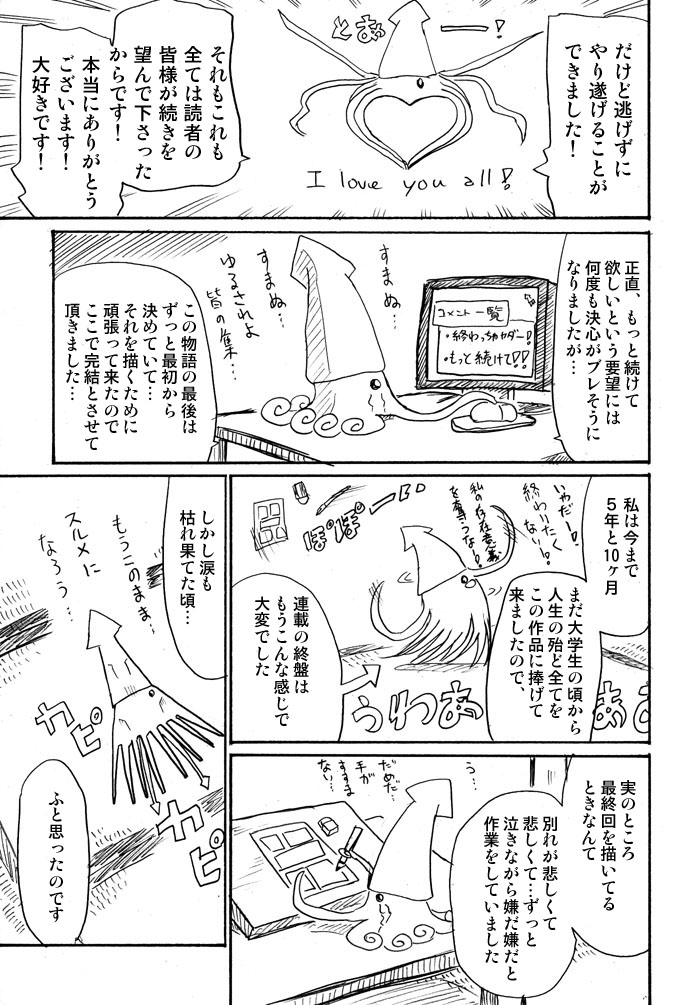 だけど逃げずに
やり遂げることが
できました！
とぁぁー！
I love you all!
それもこれも
全ては読者の
皆様が続きを
望んで下さった
からです！
本当にありがとう
ございます！
大好きです！
正直、もっと続けて
欲しいという要望には
何度も決心がブレそうに
なりましたが…
コメント一覧
・終わっちゃヤダー！
・もっと続けて!!
すまぬ…
すまぬ…
ゆるされよ
皆の集…
この物語の最後は
ずっと最初から
決めていて…
それを描くために
頑張って来たので
ここで完結とさせて
頂きました…
私は今まで
５年と10ヶ月
まだ大学生の頃から
人生の殆ど全てを
この作品に捧げて
来ましたので、
いやだー!!
終わりたく
ない!?
私の存在意義
を奪うな!?
ぽぽーっ
連載の終盤は
もうこんな感じで
大変でした
うわあ
あぁ
実のところ
最終回を描いてる
ときなんて
別れが悲しくて
悲しくて…ずっと
泣きながら嫌だ嫌だと
作業をしていました
う…
だめだ…
手が
すすま
ない…
しかし涙も
枯れ果てた頃…
もうこのまま…
スルメに
なろう…
カピ
カピ
ふと思ったのです